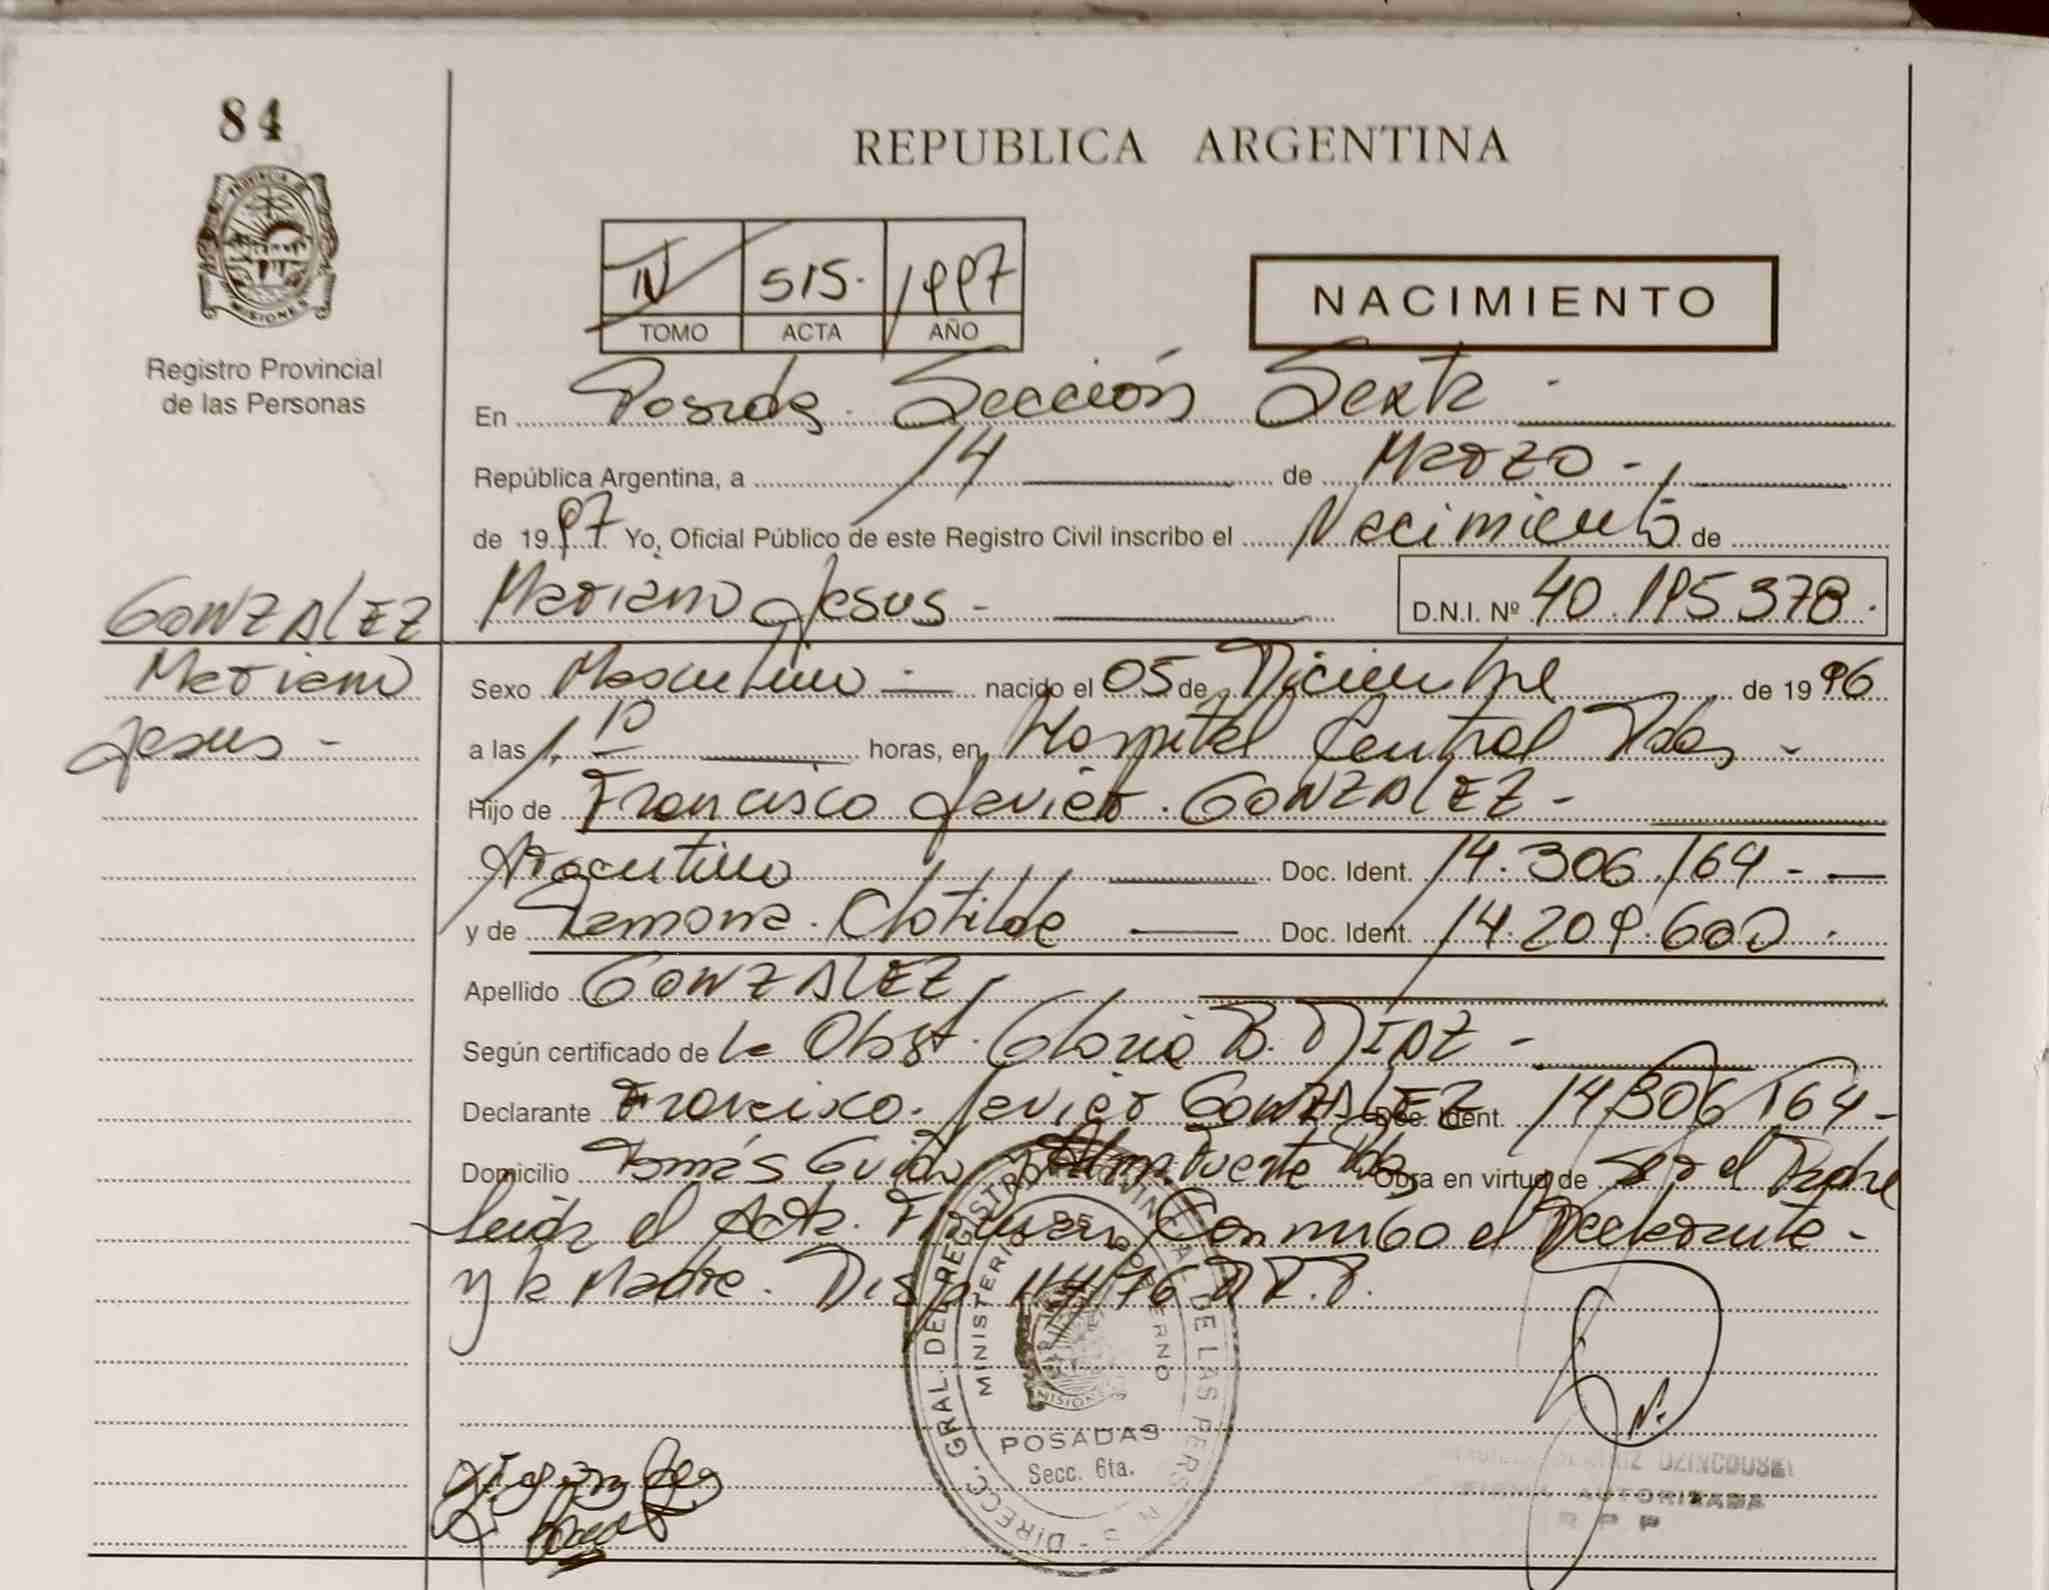 84
REPUBLICA ARGENTINA
PROVINCIA DE
MISIONES
Registro Provincial
de las Personas
IV 515. 1997
TOMO ACTA AÑO
NACIMIENTO
En Posadas Sección Sexta
República Argentina, a 14 de Marzo -
de 1997 Yo, Oficial Público de este Registro Civil inscribo el Nacimiento de
GONZALEZ Mariano Jesus - D.N.I. Nº 40.195.378.
Mariano Sexo Masculino - nacido el 05 de Diciembre de 1996
Jesus - a las 1,10 horas, en Hospital Central Pdas -
Hijo de Francisco Javier GONZALEZ -
Argentino Doc. Ident. 14.306.164 -
y de Ramona Clotilde Doc. Ident. 14.209.600.
Apellido GONZALEZ
Según certificado de la Obst. Gloria B. DIAZ -
Declarante Francisco Javier GONZALEZ Doc. Ident. 14.306.164 -
Domicilio Tomás Guido y Almafuerte Pdas Obra en virtud de ser el Padre
Leida el Acta Firman Conmigo el Declarante -
y la Madre.
DIRECC. GRAL. DEL REGISTRO PROVINCIAL DE LAS PERS.
MINISTERIO DE GOBIERNO
MISIONES
POSADAS
Secc. 6ta.
FIRMA AUTORIZADA
R P P